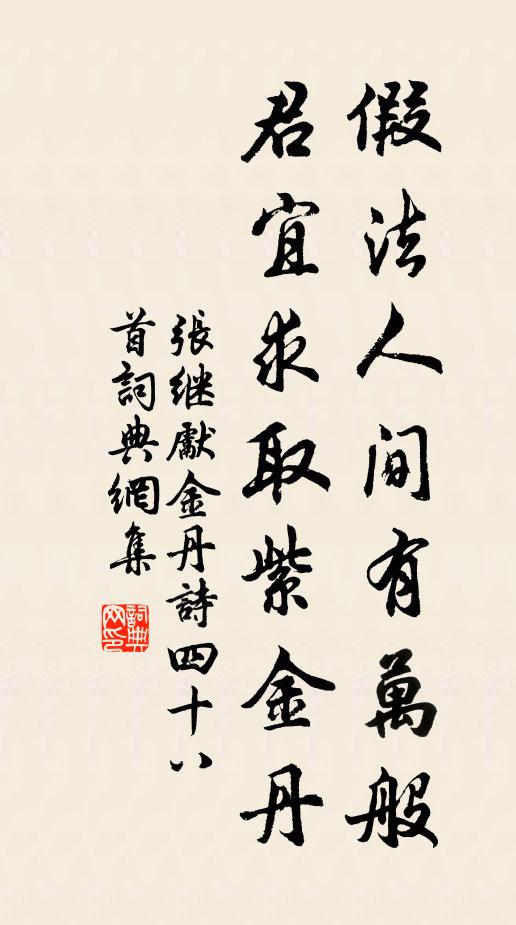 假法人間有萬般
君宜求取紫金丹
張继獻金丹詩四十八
首詞典網集
詞典網印